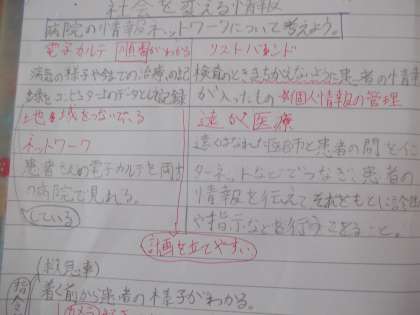 社会を変える情報
病院の情報ネットワークについて考えよう。
電子カルテ 順番がわかる リストバンド
病気の様子や全ての治療の記
録をコンピューター上のデータとして記録
検査のときまちがえないように患者の情報
が入ったもの ※個人情報の管理
地いきをつないでいる
ネットワーク
患者さんの電子カルテを両方
の病院で見れる。
している
遠かく医療
遠くはなれた医師と患者の間をイン
ターネットなどでつなぎ、患者の
情報を伝えてそれをもとに診
や指示などを行うこと。
計画を立てやすい
(救急車)
着く前から患者の様子がわかる。